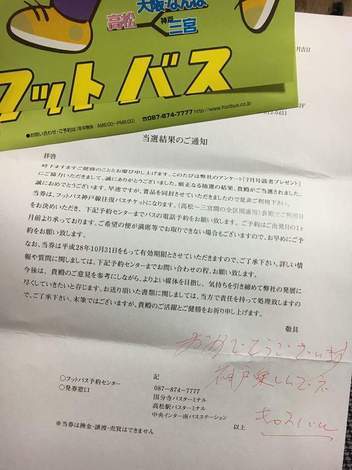 大阪・なんば
高松 神戸 三宮
フットバス
●お問い合わせ・ご予約は 087-874-7777 http://www.footbus.co.jp
月吉日
当選結果のご通知
拝啓
時下ますますご健勝のこととお慶び申し上げます。このたびは弊社のアンケート「7月号読者プレゼント」
にご協力いただきまして、誠にありがとうございました。厳正なる抽選の結果、貴殿がご当選されました。
誠におめでとうございます。早速ですが、賞品を同封させていただきましたので是非ご利用下さい。
当券は、フットバス神戸線往復バスチケットになります。(高松~三宮間の全区間適用) 貴殿でご利用日
をお決めいただき、下記予約センターまでバスの電話予約をお願い致します。ご予約はご出発日の1ヶ
月前より承っております。ご希望の便が満席等でお取りできない場合もございますので、お早めにご予
約をお願い致します。
なお、当券は平成28年10月31日をもって有効期限とさせていただきますので、ご了承下さい。詳しい情
報や質問に関しましては、下記予約センターまでお問い合わせの程、お願い致します。
今後は、貴殿のご意見を参考にしながら、よりよい媒体を目指し、気持ちを引き締めて弊社の発展に
尽くしていきたいと存じます。お送り頂いた書類に関しましては、当方で責任を持って処理致しますの
で、ご了承下さい。末筆ではございますが、貴殿のご活躍とご健勝をお祈り申し上げます。
敬具
おめでとうございます
神戸楽しんで
記
○フットバス予約センター 087-874-7777
○発券窓口 国分寺バスターミナル
高松駅バスターミナル
中央インター南バスステーション
以上
※当券は換金・譲渡・売買はできません